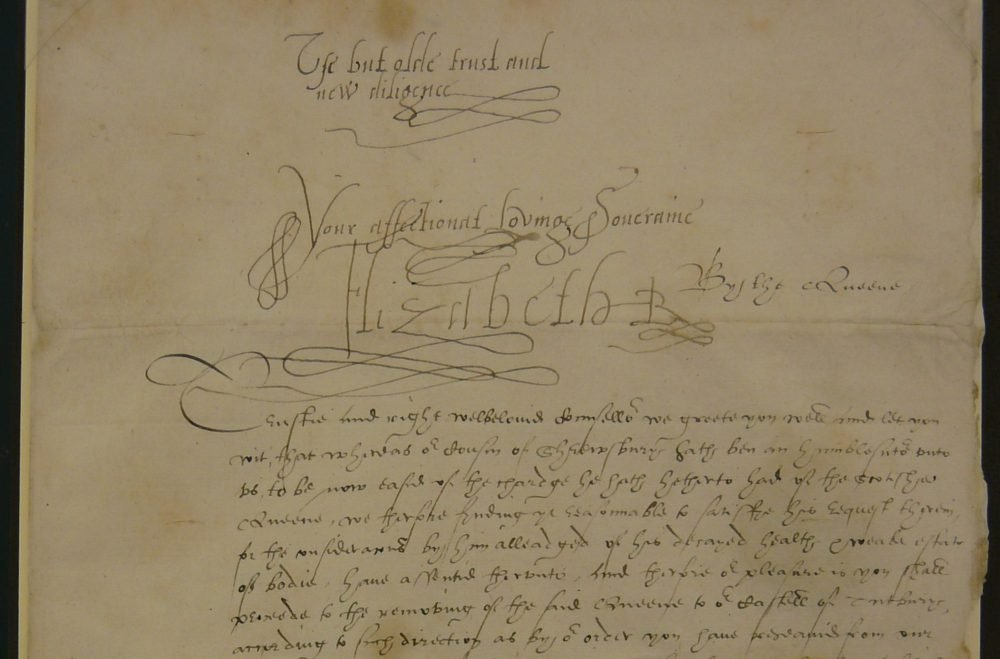 Use but olde trust and
new diligence
Your affectionat loving Soveraine
Elizabeth R
By the Queene
Trustie and right welbeloued Counsellor we greete you well And let you
wit, that whereas or Cousin of Shrewsbury hath ben an humble sutor unto
us, to be now eased of the chardge he hath hetherto had of the Scotishe
Queene, we therfore finding yt reasonnable to satisfie his request therein,
for the consideracons by him alleadged of his decayed health & weake estate
of bodie, have assented therunto, And therfore or pleasure is you shall
proceede to the removing of the said Queene to or Castell of Tutbury,
according to such direction as by or order you have receaued from our